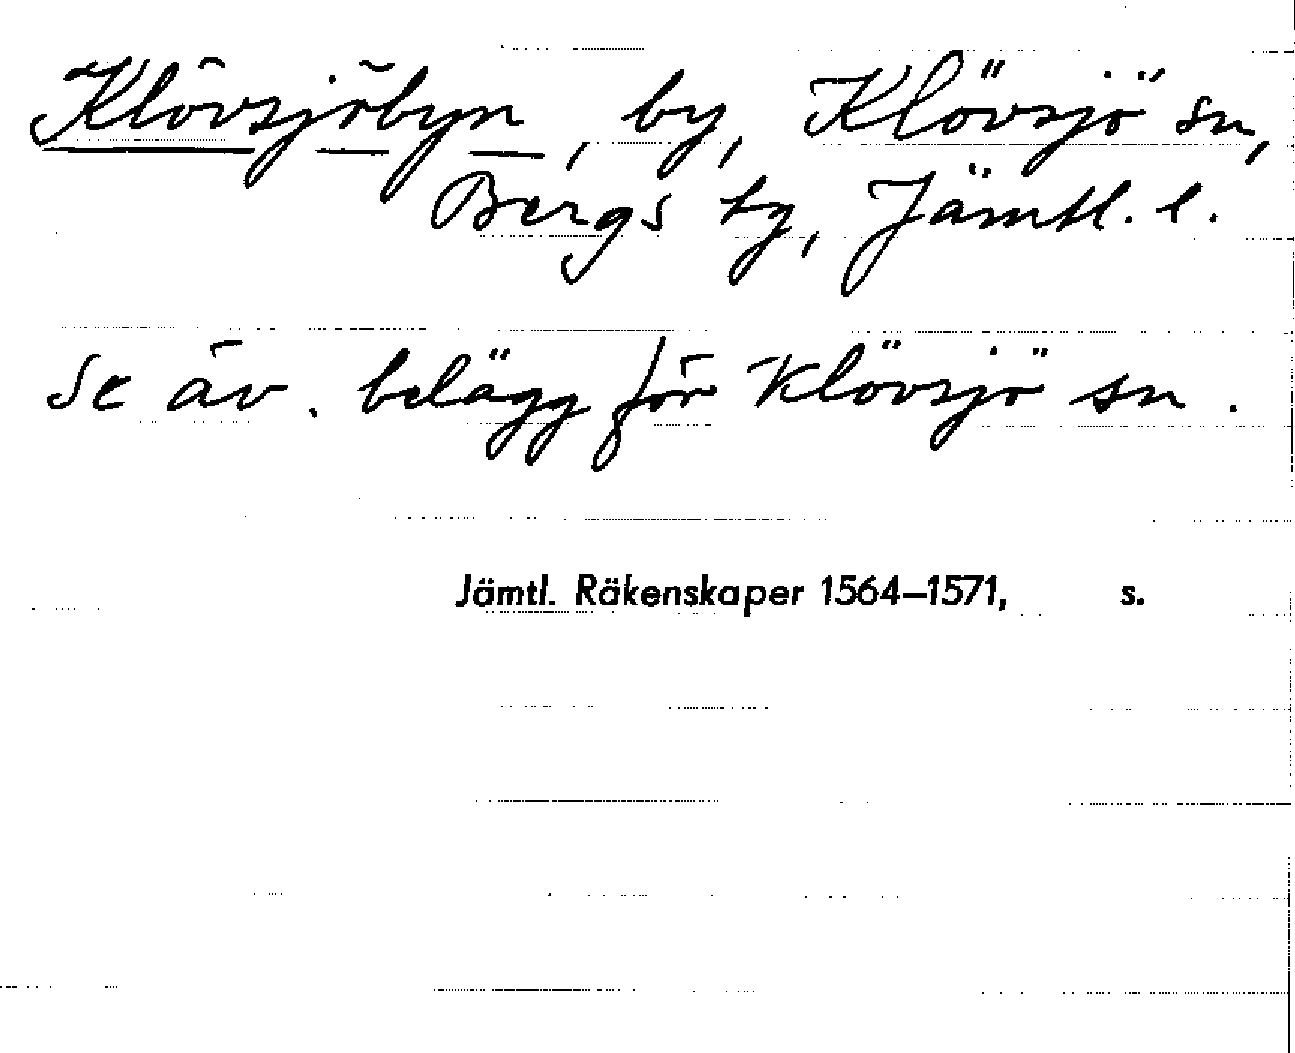 Klövsjöbyn, by, Klövsjö sn,
Bergs tg, Jämtl. l.
Se äv. belägg för Klövsjö sn.
Jämtl. Räkenskaper 1564–1571, s.